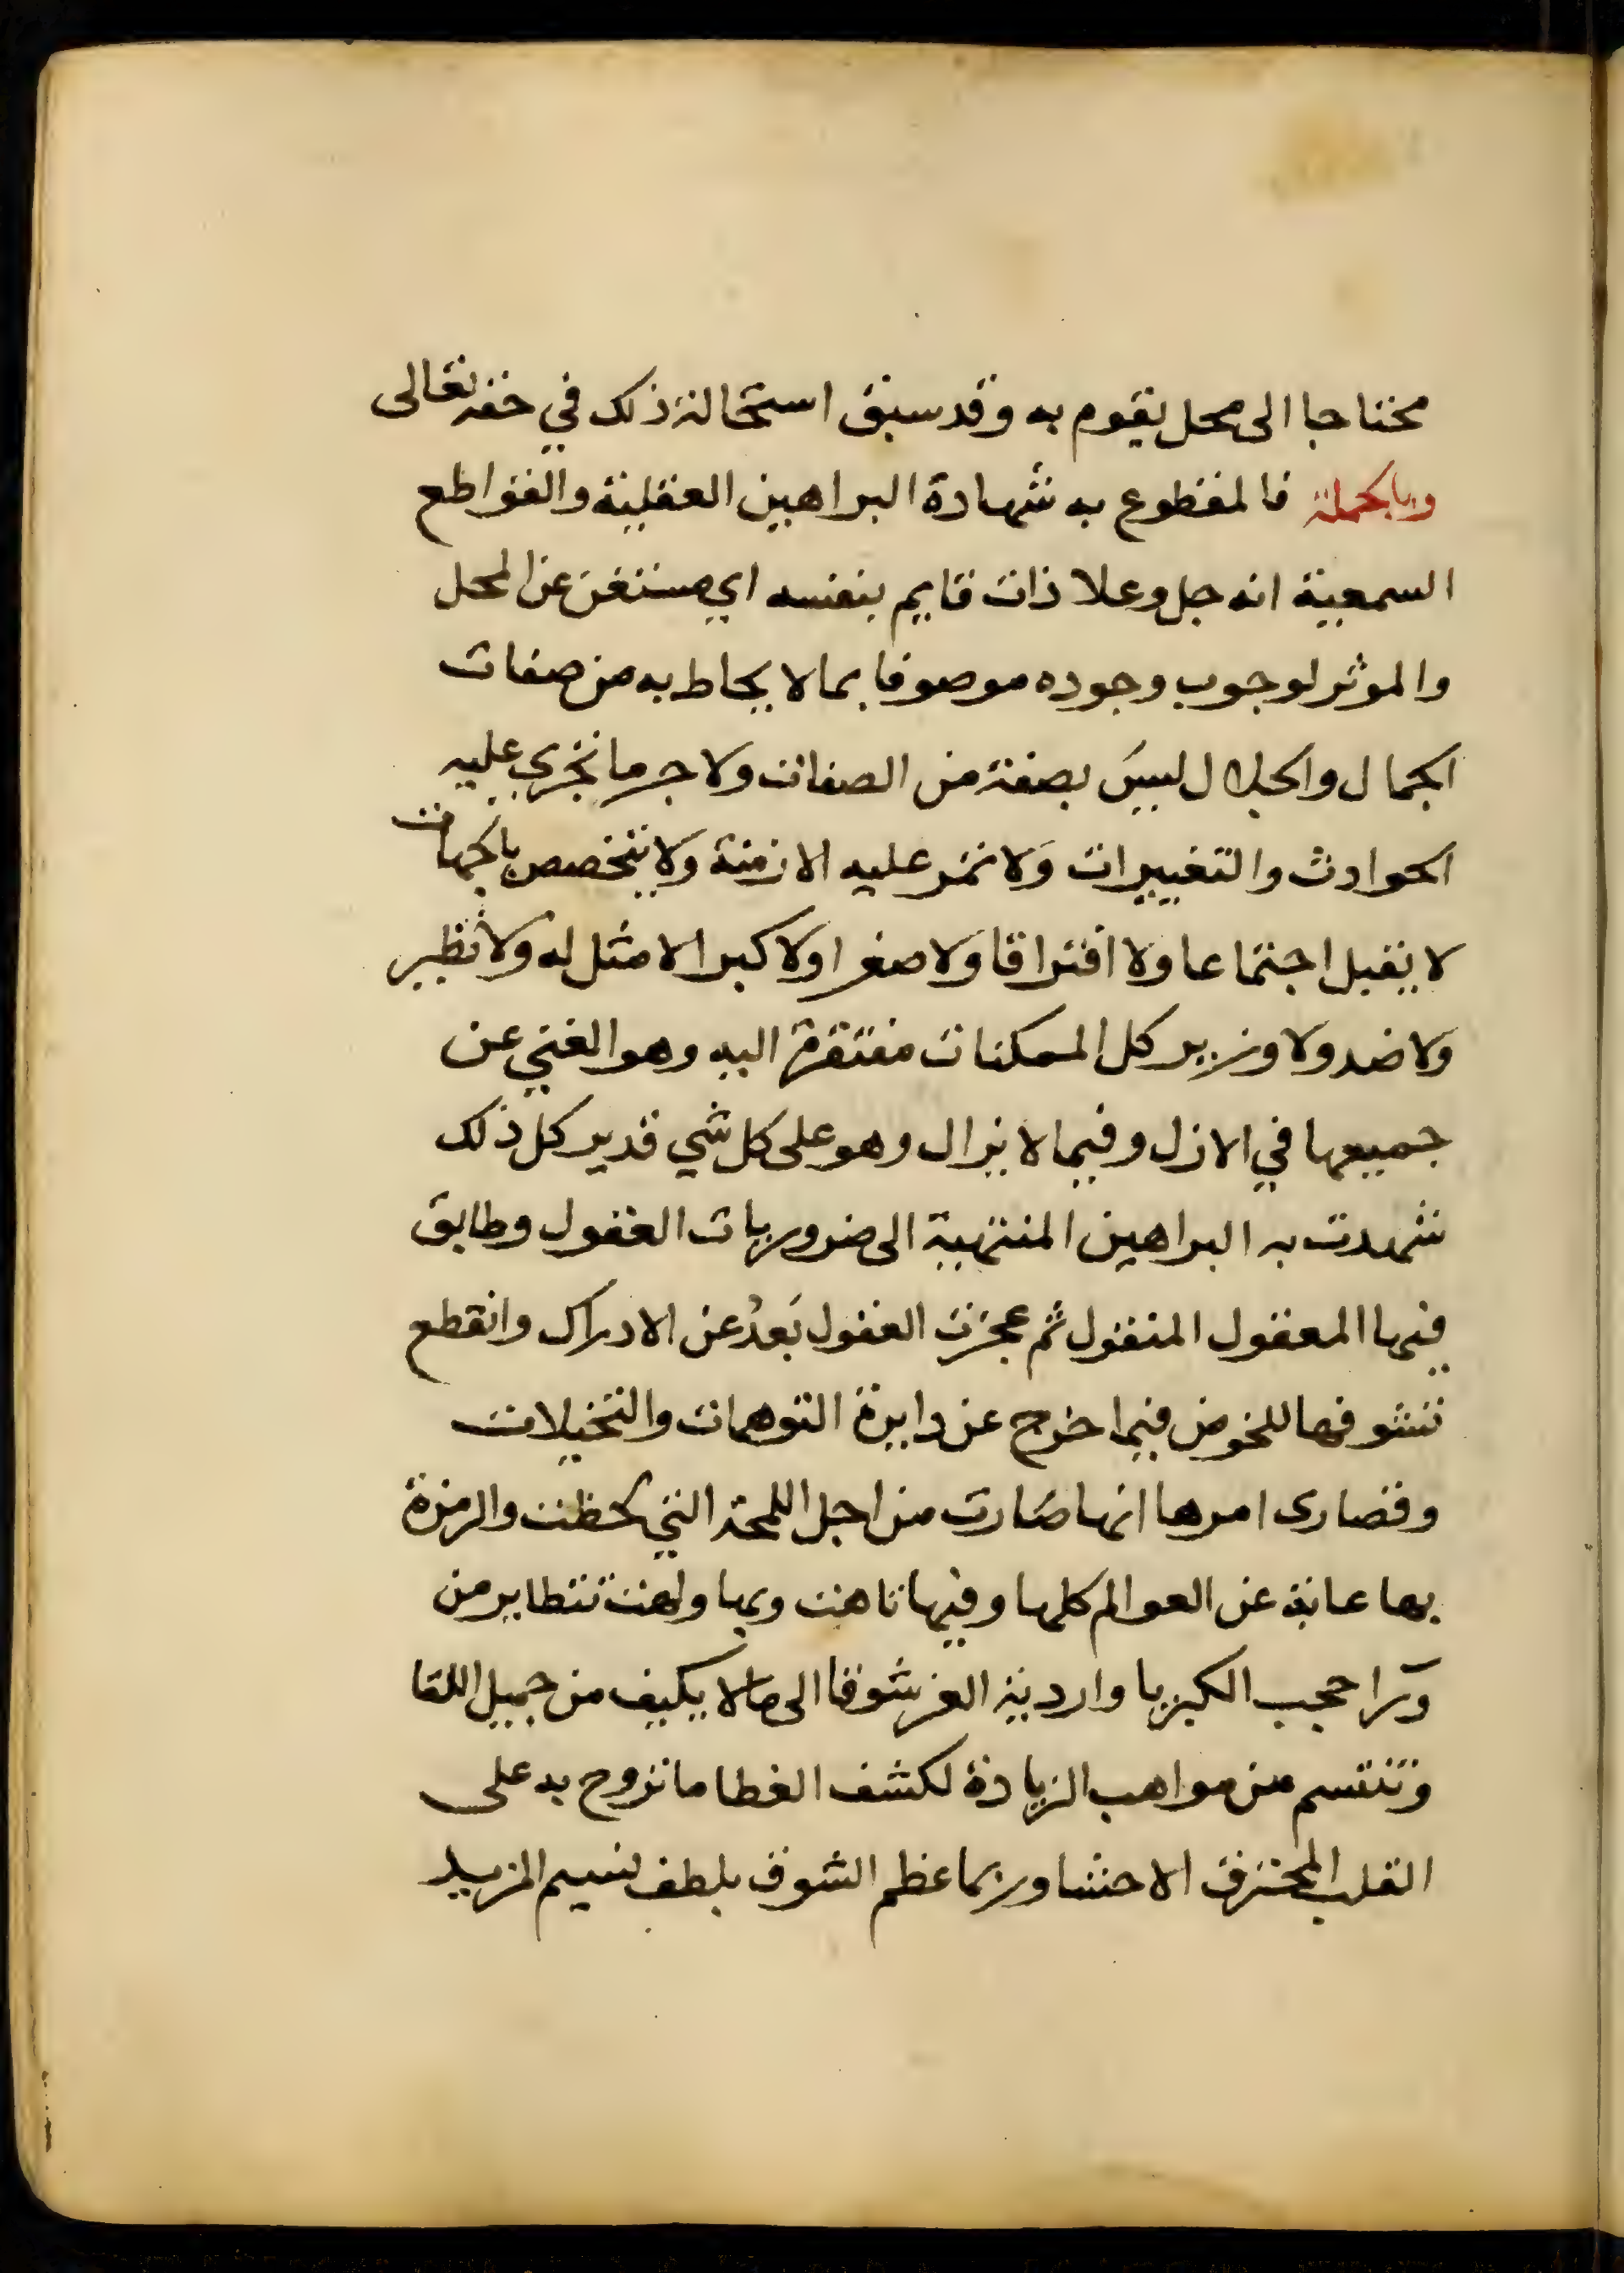 محتاجا الى محل يقوم به وقد سبق استحالة ذلك في حقه تعالى
وبالجملة فالمقطوع به شهادة البراهين العقلية والقواطع
السمعية انه جل وعلا ذات قايم بنفسه اي مستغن عن المحل
والموثر لوجوب وجوده موصوفا بما لا يحاط به من صفات
الجمال والجلال ليس بصفة من الصفات ولا جرما تجري عليه
الحوادث والتغييرات ولا تمر عليه الازمنة ولا يتخصص بالجهات
لا يقبل اجتماعا ولا افتراقا ولا صغرا ولا كبرا لا مثل له ولا نظير
ولا ضد ولا وزير كل الممكنات مفتقرة اليه وهو الغني عن
جميعها في الازل وفيما لا يزال وهو على كل شي قدير كل ذلك
شهدت به البراهين المنتهية الى ضروريات العقول وطابق
فيها المعقول المنقول ثم عجزت العقول بعد عن الادراك وانقطع
تشوفها للخوض فيما خرج عن دايرة التوهمات والتخيلات
وقصارى امرها انها صارت من اجل اللمحة التي لحظت والرمزة
بها غايبة عن العوالم كلها وفيها تاهت وبها ولهت تتطاير من
ورا حجب الكبريا واردية العز شوقا الى ما لا يكيف من جميل اللقا
وتنتسم من مواهب الزيادة لكشف الغطا ما تروح به على
القلب المحترق الاحشا وربما عظم الشوق بلطف نسيم المزيد